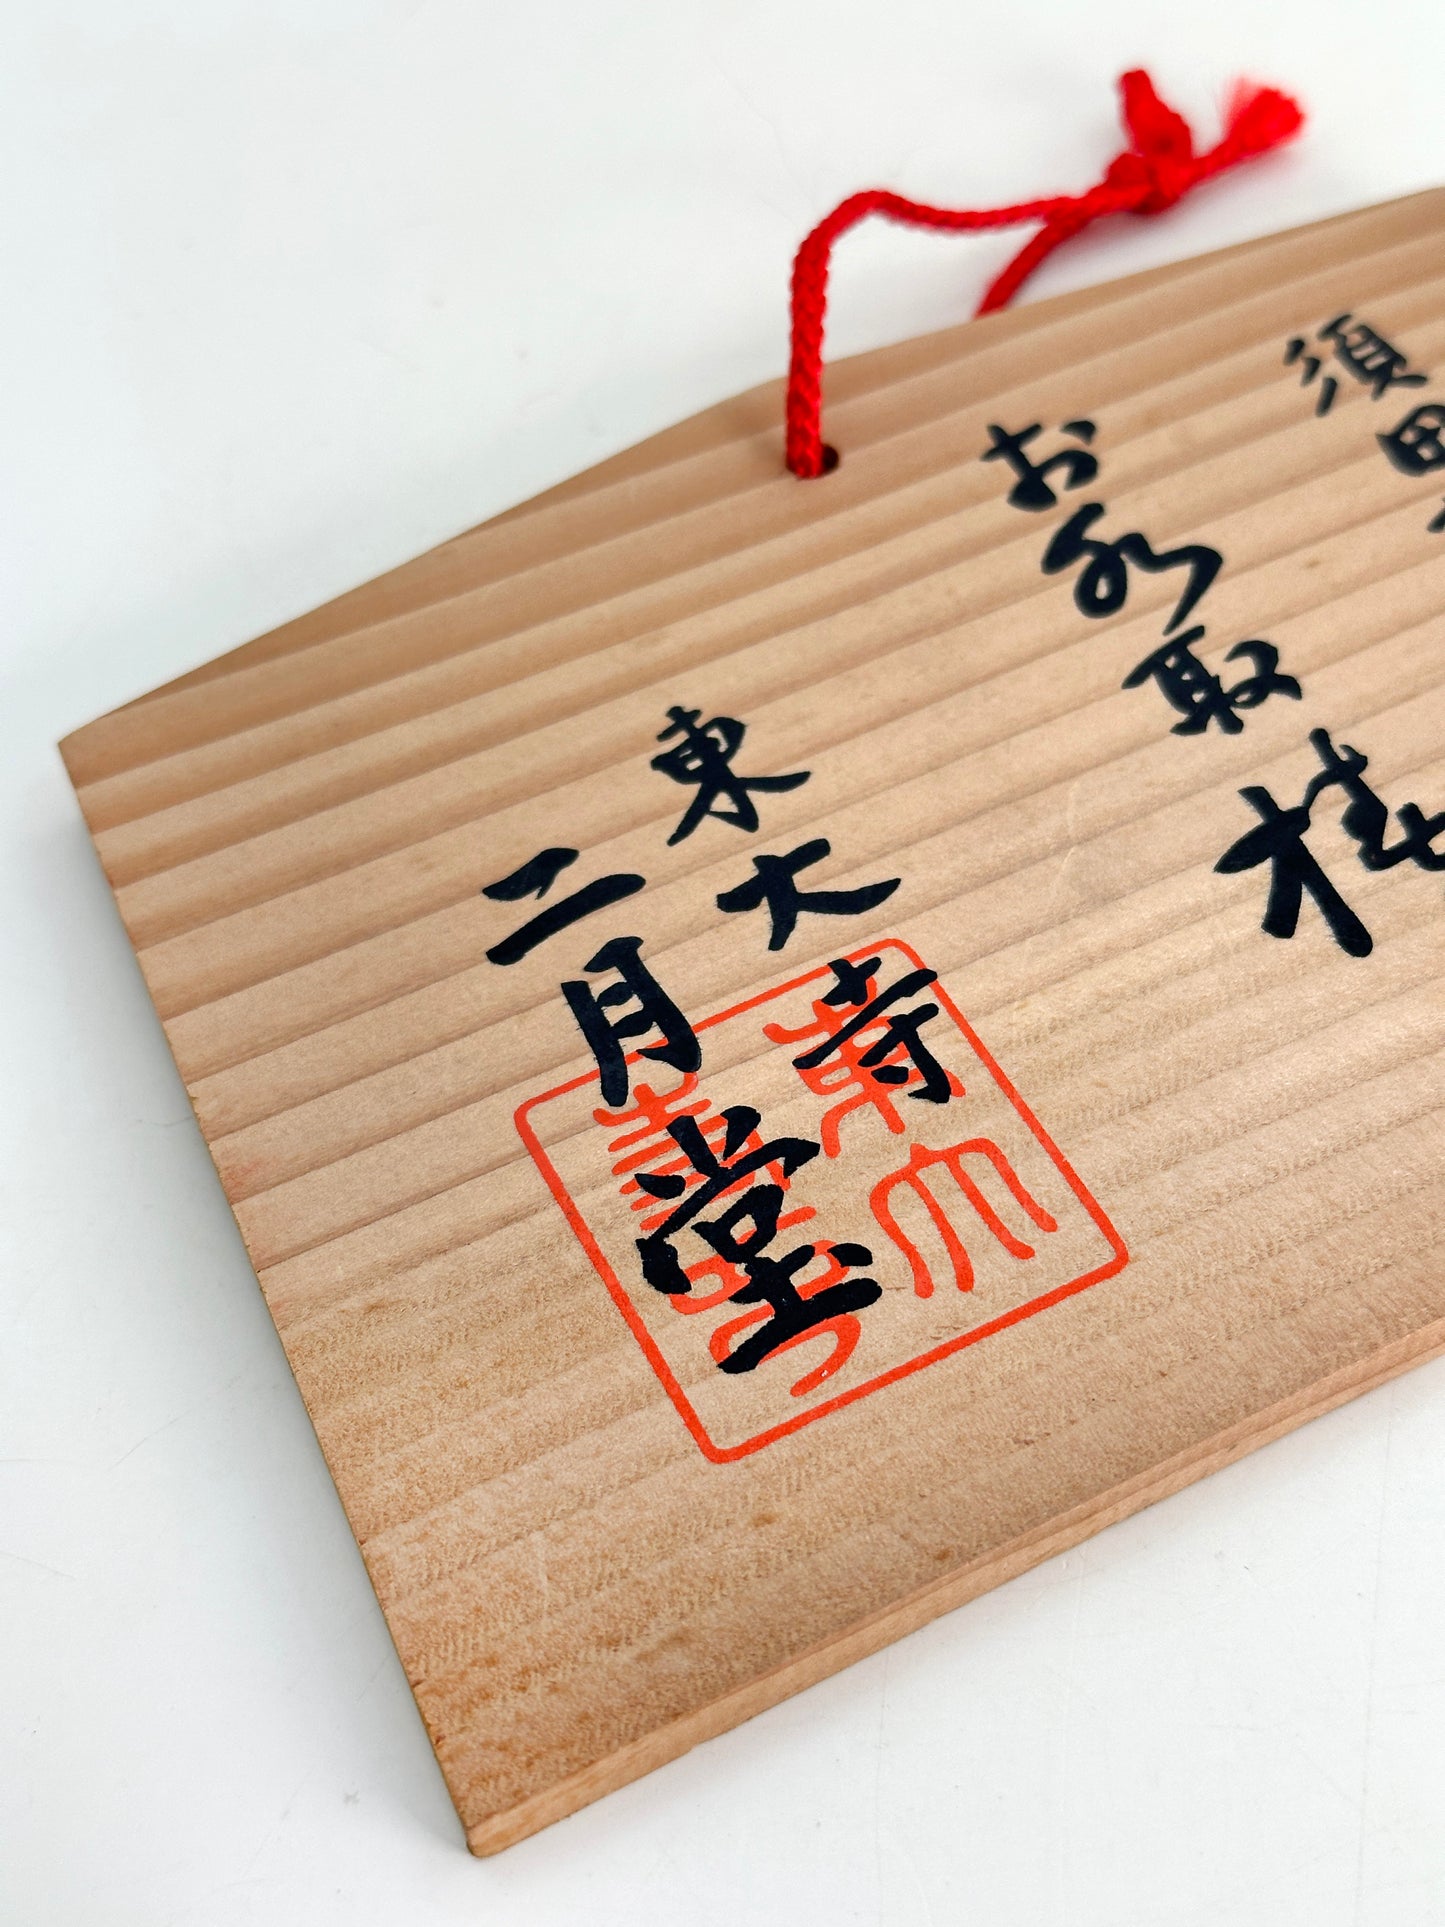 須田
お水取
東大寺
二月堂